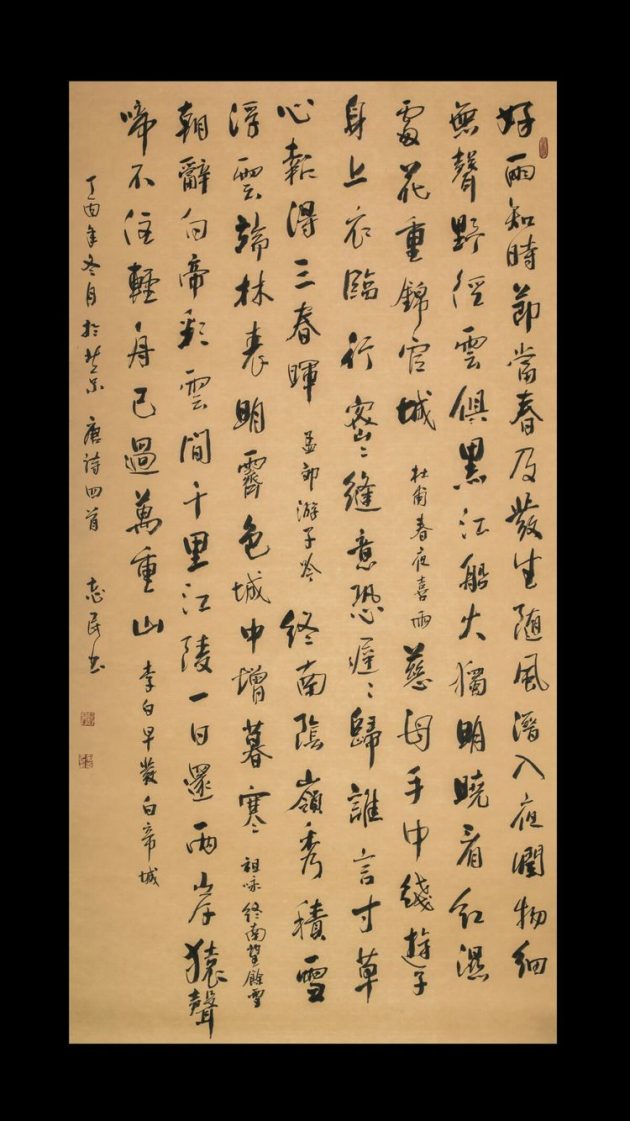 好雨知時節當春乃發生随風潛入夜潤物細
無聲野徑雲俱黑江船火獨明曉看紅濕
處花重錦官城 杜甫春夜喜雨 慈母手中綫遊子
身上衣臨行密〻縫意恐遲〻歸誰言寸草
心報得三春暉 孟郊游子吟 終南陰嶺秀積雪
浮雲端林表明霽色城中增暮寒 祖咏終南望餘雪
朝辭白帝彩雲間千里江陵一日還兩岸猿聲
啼不住輕舟已過萬重山 李白早發白帝城
丁酉年冬月於京 唐詩四首 志民书